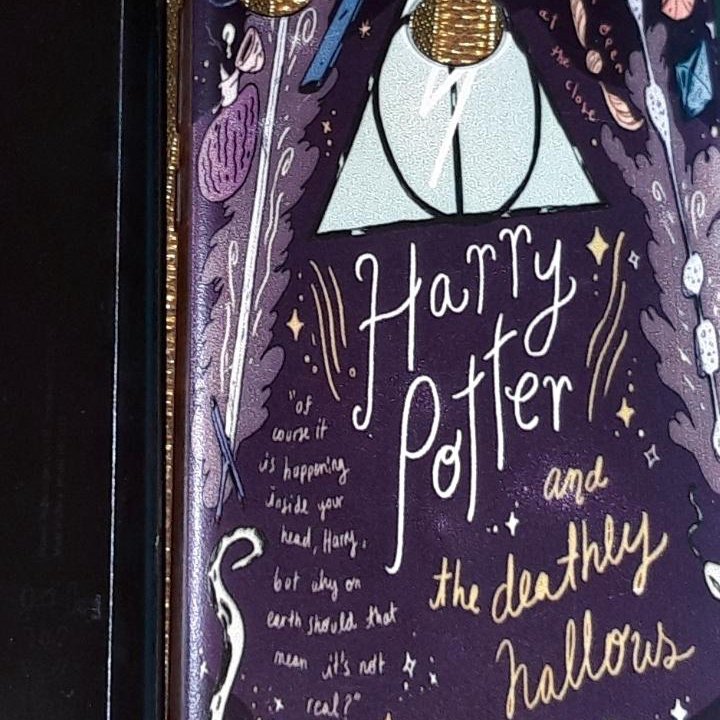 at
open
the close
Harry
Potter
and
the deathly
hallows
"of
course it
is happening
inside your
head, Harry,
but why on
earth should that
mean it's not
real?"